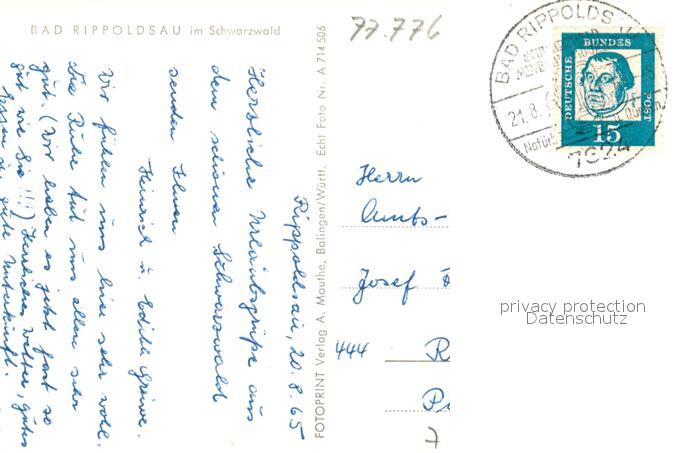 BAD RIPPOLDSAU im Schwarzwald
77.776
Rippoldsau, 20.8.65
Herzliche Urlaubsgrüße aus
dem schönen Schwarzwald
senden Ihnen
Heinrich u. Edith
Wir fühlen uns hier sehr wohl.
Die Ruhe tut uns allen sehr
gut. (Wir haben es jetzt fast so
gut wie Sie!!!) Herrliches Wetter, gutes
Essen u. gute Unterkunft.
FOTOPRINT Verlag A. Mauthe, Balingen/Württ. Echt Foto Nr. A 714506
BAD RIPPOLDS
21.8.
7624
DEUTSCHE BUNDES POST
15
Herrn
Amts-
Josef
444 R
7
privacy protection
Datenschutz